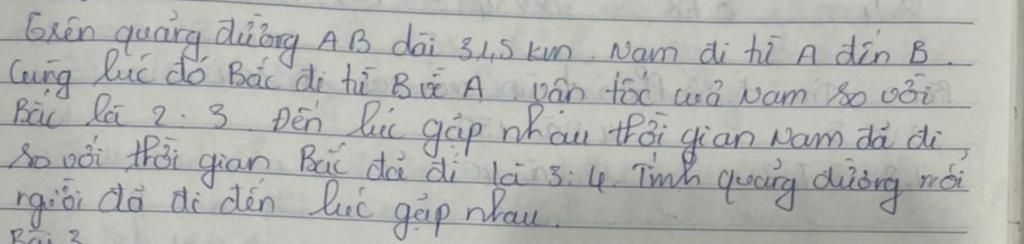 Trên quãng đường AB dài 31,5 km. Nam đi từ A đến B.
Cùng lúc đó Bắc đi từ B về A. vận tốc của Nam so với
Bắc là 2:3. Đến lúc gặp nhau thời gian Nam đã đi
so với thời gian Bắc đã đi là 3:4. Tính quãng đường mỗi
người đã đi đến lúc gặp nhau.
Bài 3